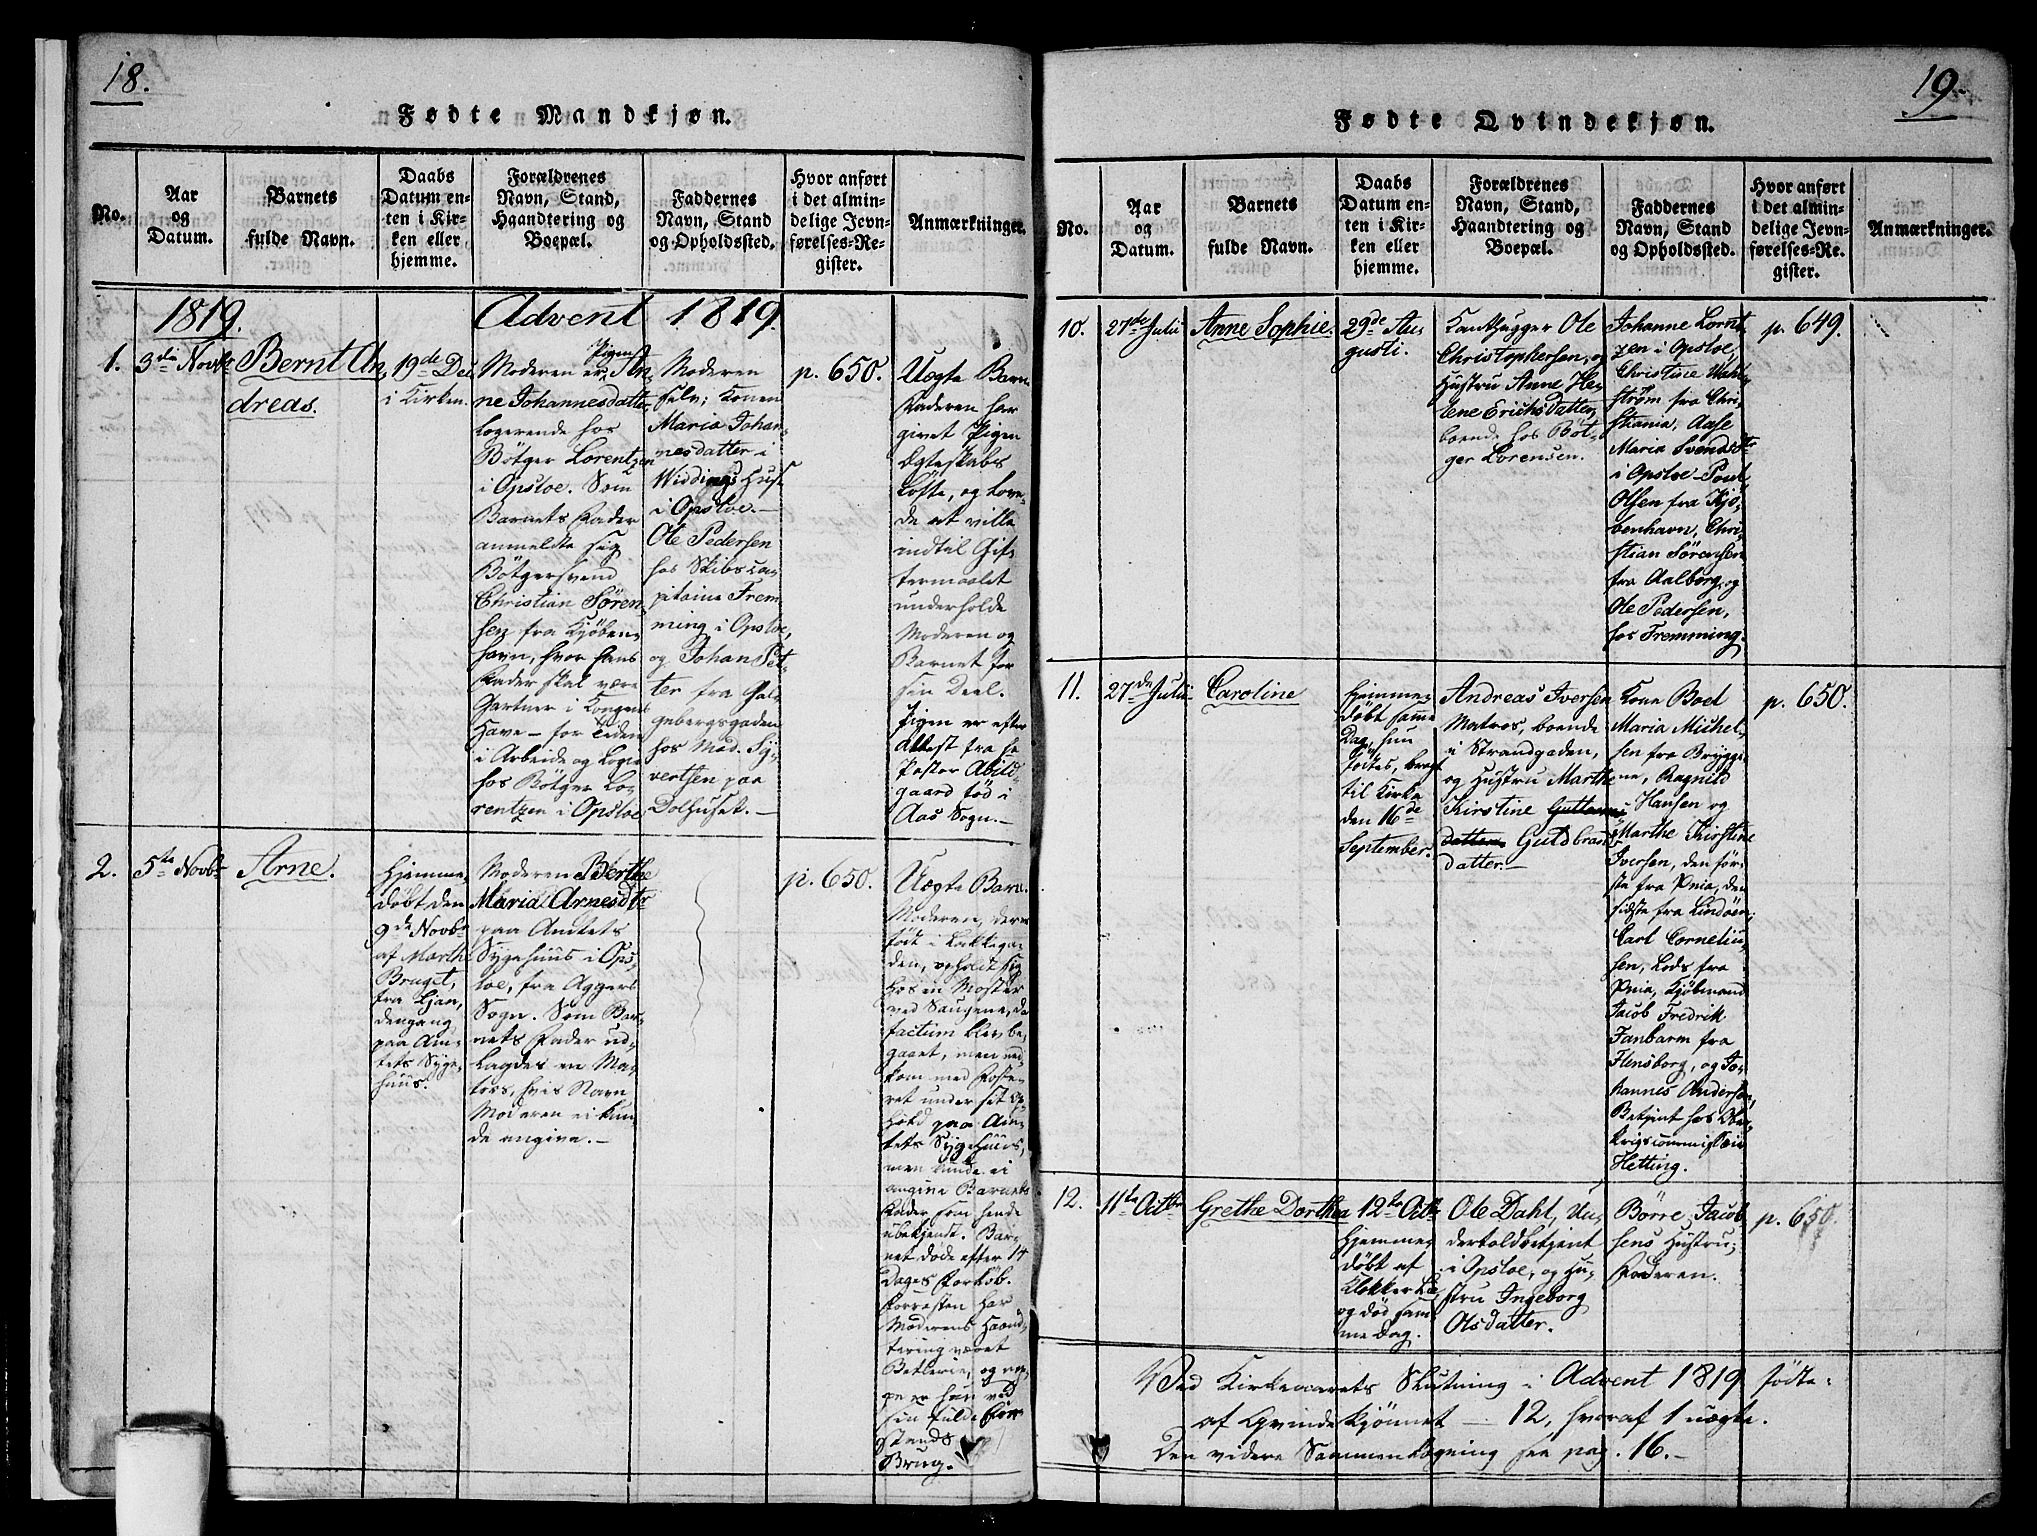 18.
Fødte Mandkjøn.
No.
Aar
og
Datum.
Barnets
fulde Navn.
Daabs
Datum en-
ten i Kir-
ken eller
hjemme.
Forældrenes
Navn, Stand,
Haandtering og
Boepæl.
Faddernes
Navn, Stand
og Opholdssted.
Hvor anført
i det almin-
delige Jevn-
førelses-Re-
gister.
Anmærkninger.
1819.
Advent 1819.
1.
3die Novbr
Bernt An,
dreas.
19de Dec
i Kirken.
Pigen
Moderen er An,
ne Johannesdatter,
logerende hos
Bötger Lorentzen
i Opsloe. Som
Barnets Fader
anmeldte sig
Bötgersvend
Christian Sören,
sen fra Kjöben,
havn, hvor hans
Fader skal være
Gartner i Kongens
Have – for Tiden
i Arbeide og Loge
hos Bötger Lo,
rentzen i Opsloe
Moderen
selv; Konen
Maria Johan,
nesdatter i
Widdings Huse
i Opsloe. –
Ole Pedersen
hos Skibsca,
pitaine Frem,
ming i Opsloe,
og Johan Pet,
ter fra
gebergsgaden
hos Mad. Sy,
vertsen paa
Dolhuset. –
p. 650.
Uægte Barn
Faderen har
givet Pigen
Ægteskabs
Löfte, og love,
de at ville
indtil Gif,
termaalet
underholde
Moderen og
Barnet for
sin Deel.
Pigen er efter
Attest fra Hr
Pastor Abild,
gaard fød i
Aas Sogn. –
2.
5te Novbr
Arne.
Hjemme,
döbt den
9de Novbr
af Marthe
Braget,
fra Ljan,
dengang
paa Am,
tets Syge,
huus.
Moderen Berthe
Maria Arnesdtr
paa Amtets
Sygehuus i Ops,
loe, fra Aggers
Sogn. Som Bar,
nets Fader ud,
lagdes en Ma,
tros, hvis Navn
Moderen ei kun,
de angive. –
p. 650.
Uægte Barn.
Moderen, der er
födt i Lakkega,
den, opholdt sig
hos en Moster
ved Saugene, da
factum blev be,
gaaet, men ned,
kom med Foste,
ret under sit Op,
hold paa Am,
tets Sygehuus,
men kunde ei
angive Barnets
Fader som hende
ubekjendt. Bar,
net döde efter 14
Dages Forlöb.
Forresten har
Moderens Haand,
tering været
Betlerie, og nep,
pe er hun ved
sin fulde For,
stands
Brug.
19.
Fødte Qvindekjøn.
No.
Aar
og
Datum.
Barnets
fulde Navn.
Daabs
Datum en-
ten i Kir-
ken eller
hjemme.
Forældrenes
Navn, Stand,
Haandtering og
Boepæl.
Faddernes
Navn, Stand
og Opholdssted.
Hvor anført
i det almin-
delige Jevn-
førelses-Re-
gister.
Anmærkninger.
10.
27de Julii
Anne Sophie.
29de Au,
gusti.
Kanthugger Ole
Christophersen, og
Hustru Anne He,
lene Erichsdatter,
boende hos Böt,
ger Lorensen.
Johanne Lornt,
zen i Opsloe,
Christine Wahl,
strøm fra Chri,
stiania, Aase
Maria Svendsdtr
i Opsloe – Poul
Olsen fra Kjö,
benhavn, Chri,
stian Sörensen
fra Aalborg, og
Ole Pedersen,
hos Fremming.
p. 649.
11.
27de Julii
Caroline
Hjemme,
döbt samme
Dag, hun
födtes, bragt
til Kirke
den 16de
September.
Andreas Iversen
Matros, boende
i Strandgaden,
og Hustru Marthe
Kirstine Guttorms
datter. Guldbrands
datter. –
Kone Boel
Maria Michel,
sen fra Brygge,
ne, Ragnild
Hansen og
Marthe Kirstine
Iversen, den för,
ste fra Pria, den
sidste fra Lindöen;
Carl Corneliu,
sen, Lods fra
Pria, Kjöbmand
Jacob Fredrik
Fanbarm fra
Flensborg, og Jo,
hannes Andersen,
Betjent hos Ober,
krigscommissair
Hetting.
p. 650.
12.
11te Octbr
Grethe Dorthea
12te Octbr
Hjemme,
döbt af
Klokker
og död sam,
me Dag.
Ole Dahl, Un,
dertoldbetjent
i Opsloe, og Hu,
stru Ingeborg
Olsdatter.
Börre Jacob,
sens Hustru;
Faderen.
p. 650.
Ved Kirkeaarets Slutning i Advent 1819 födte:
af Qvindekjönnet – 12, hvoraf 1 uægte.
Den videre Sammenlægning see pag. 16. –